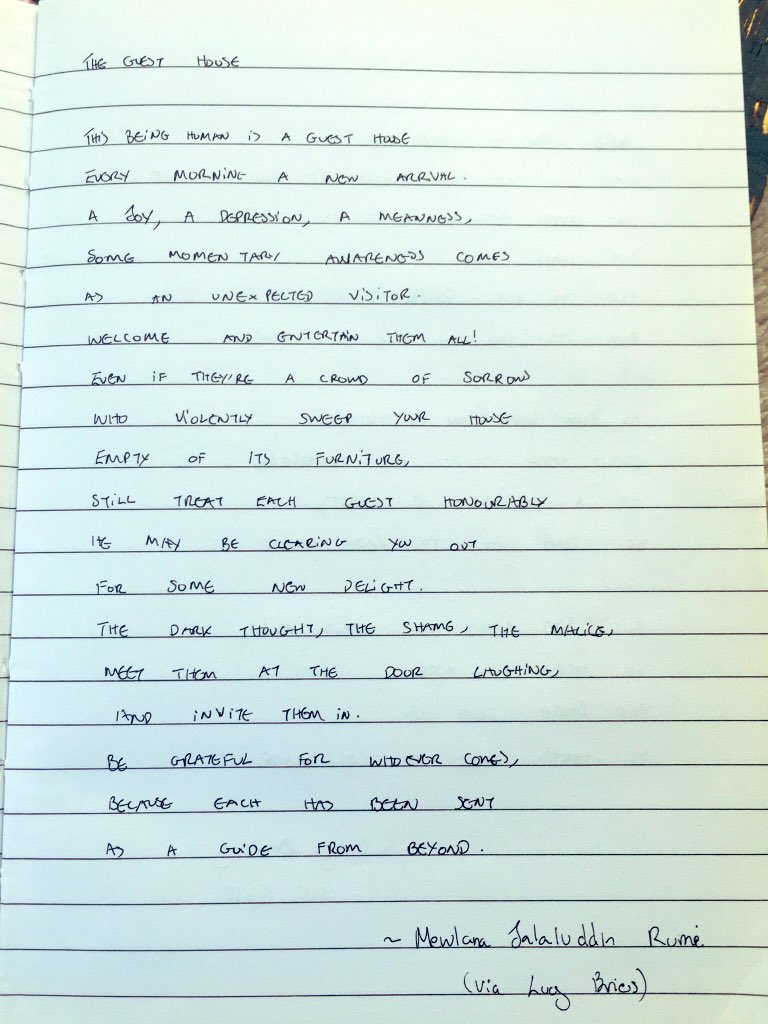 THE GUEST HOUSE
THIS BEING HUMAN IS A GUEST HOUSE
EVERY MORNING A NEW ARRIVAL.
A JOY, A DEPRESSION, A MEANNESS,
SOME MOMENTARY AWARENESS COMES
AS AN UNEXPECTED VISITOR.
WELCOME AND ENTERTAIN THEM ALL!
EVEN IF THEY'RE A CROWD OF SORROWS
WHO VIOLENTLY SWEEP YOUR HOUSE
EMPTY OF ITS FURNITURE,
STILL TREAT EACH GUEST HONOURABLY
HE MAY BE CLEARING YOU OUT
FOR SOME NEW DELIGHT.
THE DARK THOUGHT, THE SHAME, THE MALICE,
MEET THEM AT THE DOOR LAUGHING,
AND INVITE THEM IN.
BE GRATEFUL FOR WHOEVER COMES,
BECAUSE EACH HAS BEEN SENT
AS A GUIDE FROM BEYOND.
~ Mewlana Jalaluddin Rumi
(via Lucy